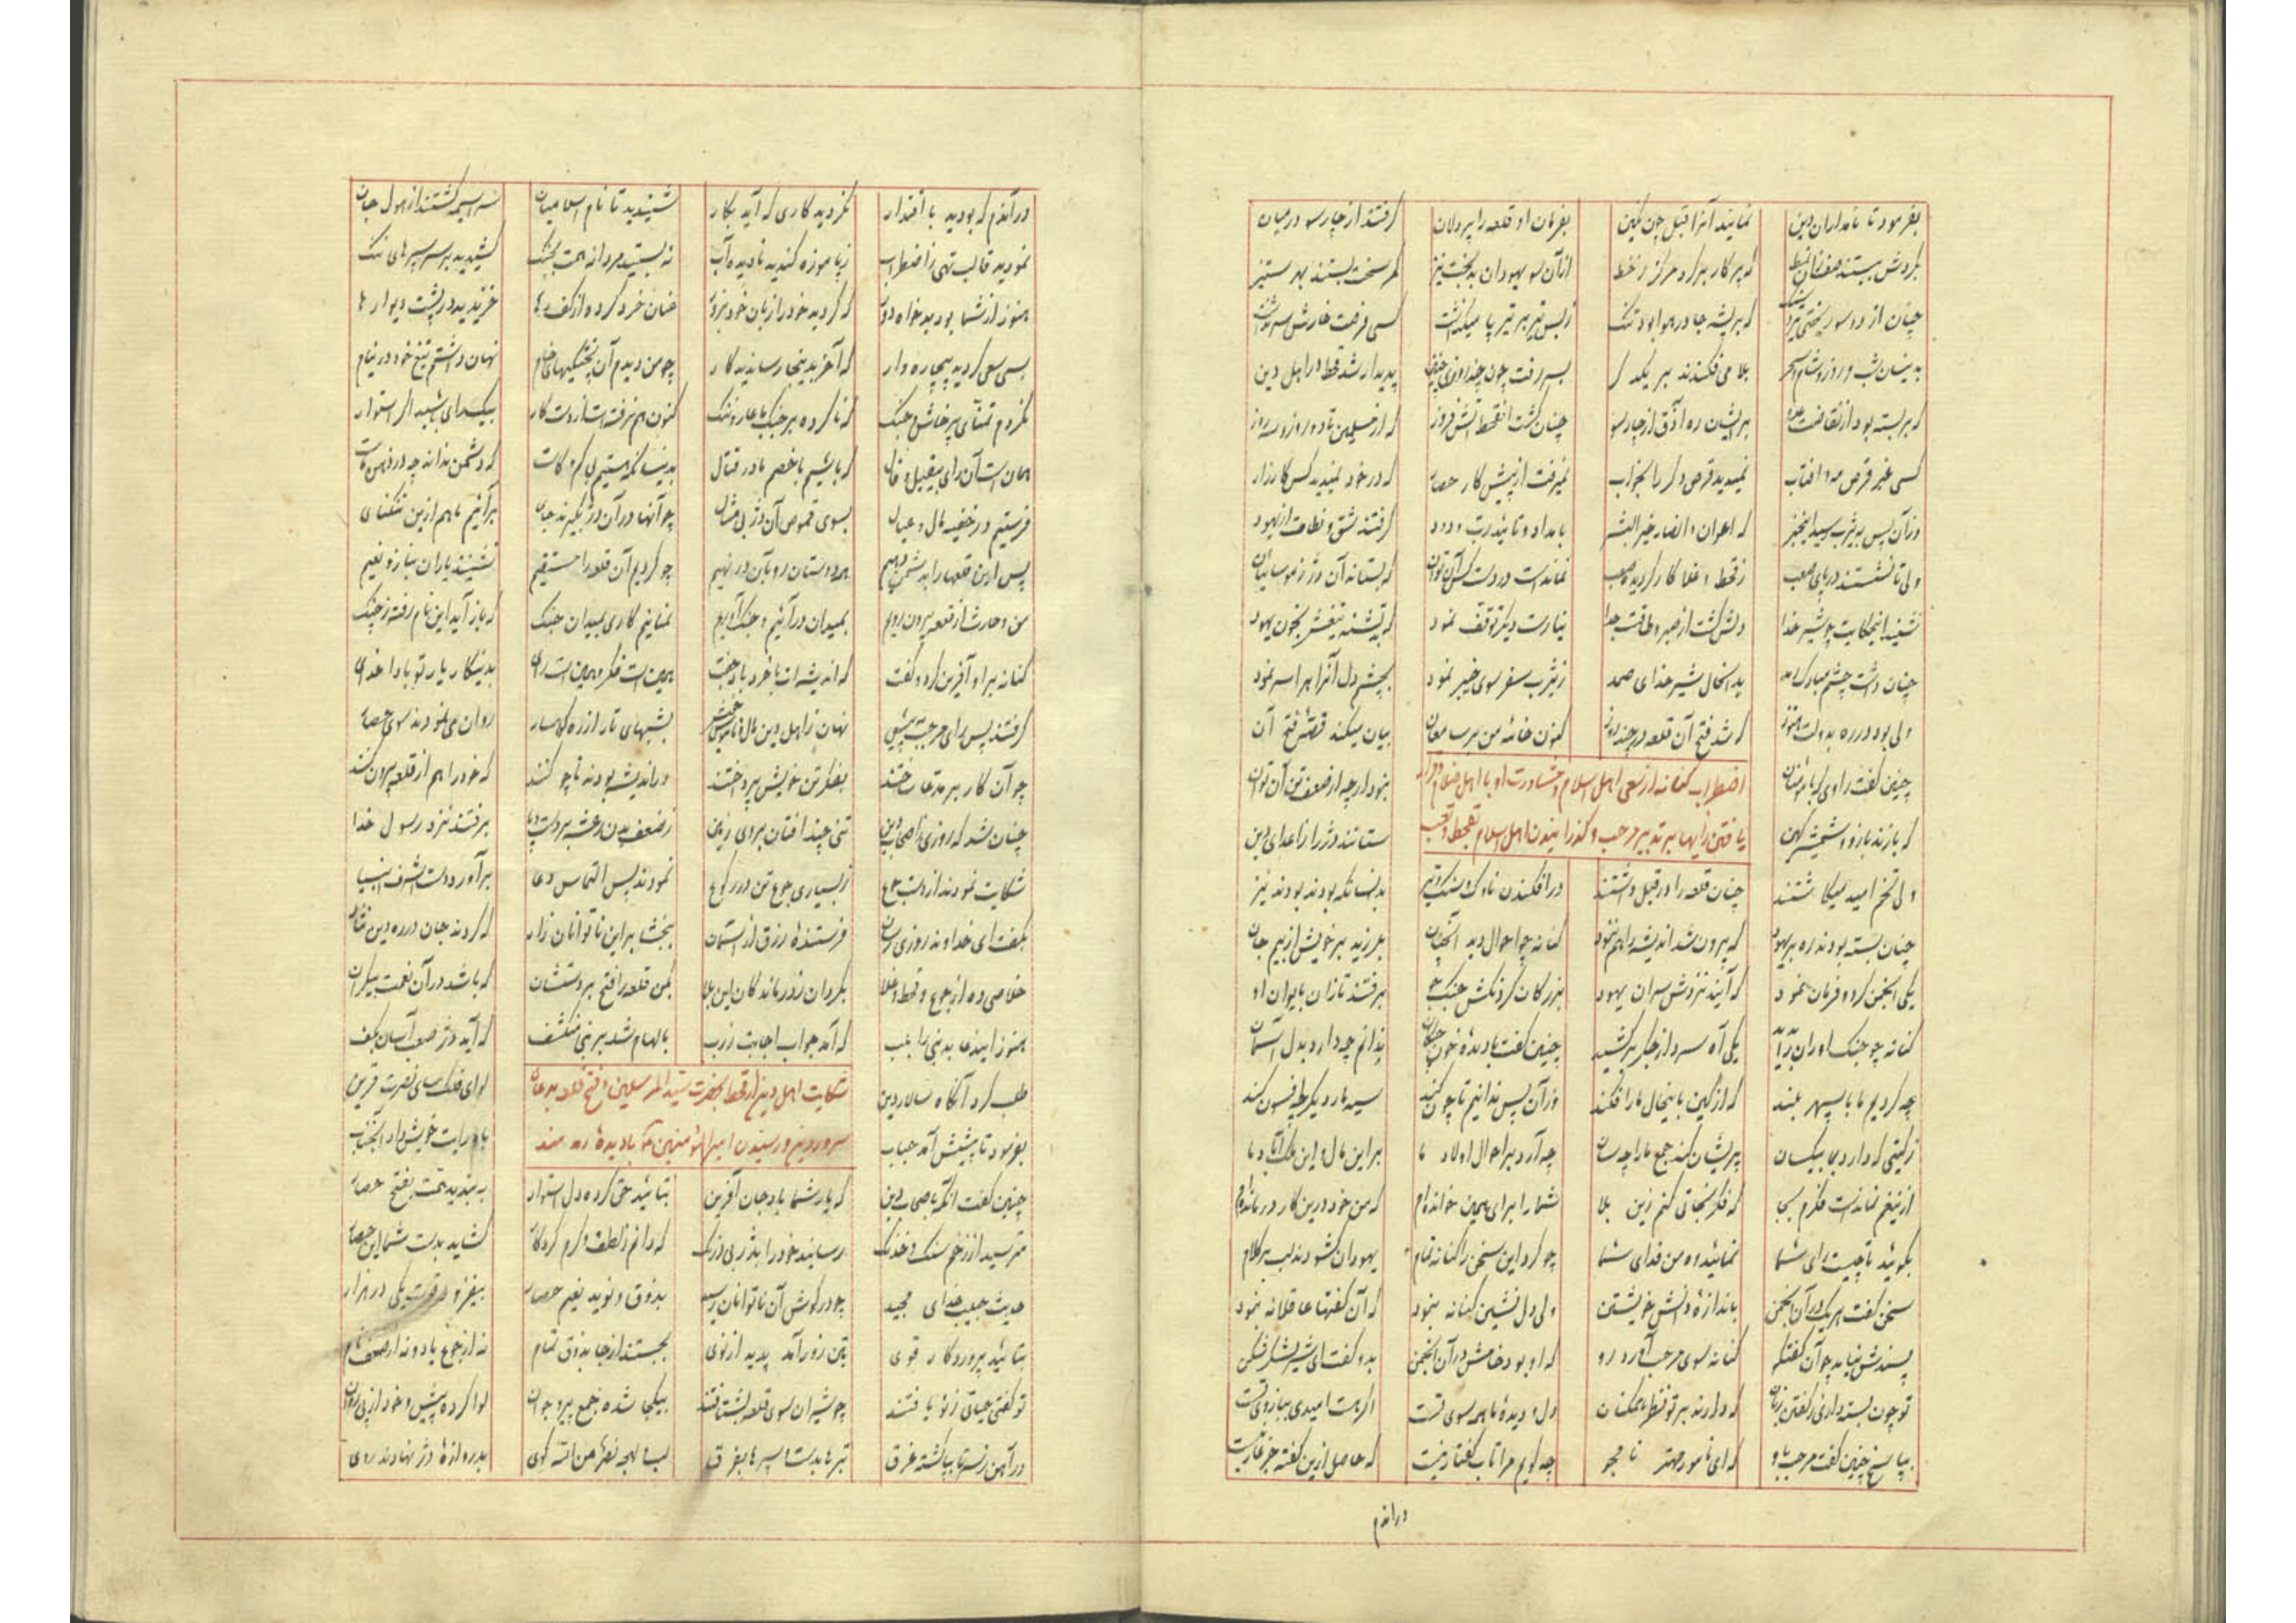 بفرمود تا نامداران دین نمایند آنرا قبل چون نگین بفرمان او قلعه را پردلان گرفتند از چارسو در میان
بگردش ببستند صف زان نمط که پرکار برگرد مرکز ز خط ازآن سو یهودان بدبخت نیز کمر سخت بستند بهر ستیز
چنان از دو سو ریختی تیر و سنگ که بر پشه جا در هوا بود تنگ ز بس تیر بر تیر پا میگذشت کسی فرصت خارش سر نداشت
بدینسان شب و روز و شام و سحر بلا می فکندند بر یکدگر بسر رفت چون چند روزی چنین پدیدار شد قحط در اهل دین
که بربسته بود از قفا بر ایشان ره آذق از چارسو چنان گشت از قحط آتش فروز که از مسلمین تا دو روز و سه روز
کسی غیر قرص مه و آفتاب نمیدید قرص دگر را بخواب نمیرفت از پیش کار حصار که در خود نمیدید کس کارزار
وزآن پس به یثرب رسید این خبر که اعوان و انصار خیر البشر بامداد و تائید رب ودود گرفتند شق و نطاة از یهود
ولی تا نشستند در پای صعب ز قحط و غلا کار گردیده صعب نماندست در دست کس آن توان که بستاند آن دژ ز موسائیان
شنید این حکایت چو شیر خدا دلش گشت از صبر و طاقت جدا نیارست دیگر توقف نمود که بد تشنه تیغش بخون یهود
چنان داشت چشم مبارک رمد بد آنحال شیر خدای صمد ز یثرب سفر سوی خیبر نمود بچشم دل آنراه را سر نمود
ولی بود در ره بدولت هنوز که شد فتح آن قلعه در چند روز کنون خامه من سر میان بیان میکند قصه فتح آن
چنین گفت راوی که با دشمنان اضطراب کنانه از سعی اهل اسلام و مشاورت او با اهل ضلام و قرار نبود ار چه از ضعف تن آن توان
که بازند بازو و شمشیر کین یافتن رایها بر تدبیر مرحب و گذرانیدن اهل اسلام بقحط و تعب ستانند دژ را ز اعدای دین
ولی تخم امید میکاشتند چنان قلعه را در قبل داشتند در افکندن ناوک و سنگ و تیر بدانسانکه بودند بودند نیز
چنان بسته بودند ره بر یهود که بیرون شد اندیشه را هم نبود کنانه چو احوال دید آنچنان بلرزید بر خویش از بیم جان
یکی انجمن کرد و فرمان نمود که آیند نزدش سران یهود بزرگان گردنکش جنگجو برفتند تازان بایوان او
کنانه چو جنگ اوران یکی آه سرد از جگر برکشید چنین گفت با دیده خون چکان ندانم چه دارد بدل آسمان
چه کردیم ما با سپهر بلند که از کین باینحال ما را فکند وزآن پس ندانیم تا چون کند سیه مار دیگر چه افسون کند
ز گیتی که دارد بما بیکسان پریشان کند جمع ما را چه سان چه آرد بر احوال اولاد ما بر این مال و این ملک آباد ما
ازینغم نماندست فکرم بجا که فکر نجاتی کنم زین بلا شما را برای همین خوانده‌ام که من خود درین کار درمانده‌ام
بگوئید تا چیست رای شما نمائید ره من فدای شما چو کرد این سخن را کنانه تمام یهودان گشودند لب بر کلام
سخن گفت هر یک در آن انجمن باندازه دانش خویشتن ولی دل نشین کنانه نبود که آن گفتها عاقلانه نبود
پسندش نیامد چو آن گفتگو کنانه سوی مرحب آورد رو که او بود خامش در آن انجمن بدو گفت ای شیر لشکر شکن
تو چون بسته داری ز گفتن زبان که دارند بر تو نظر همکنان دل و دیده ما همه سوی تست اگر هست امیدی ببازوی تست
بپاسخ چنین گفت مرحب باو که ای نامور مهتر نامجو چه گویم مرا تاب گفتار نیست که حاصل ازین گفته جز عار نیست
درآندم
درآندم که بودید با اقتدار نکردید کاری که آید بکار شنیدید تا نام اسلامیان سراسیمه گشتند از هول جان
نمودید قالب تهی ز اضطراب ز پا موزه کندید نادیده آب نه بستید مردانه همت بجنگ کشیدید بر سر سپرهای ننگ
هنوز از شما بودید که گردید خود را زبان خود عنان خرد کرده از کف رها خزیدید در پشت دیوارها
بسی سعی کردید بیچاره‌وار که آخر بدینجا رسانید کار چو من دیدم آن پختگیهای خام نهان داشتم تیغ خود در نیام
نکردم تمنای پرخاش و جنگ که ناکرده بر جنگ با عار و ننگ کنون هم نرفته است از دست کار بیکرای باشید اگر استوار
همان است آن رای بیقیل و قال که باشیم با خصم در قتال بدینسانکه هستیم بی کم و کاست که دشمن نداند چه در ذهن ماست
فرستیم در خفیه مال و عیال بسوی قموص آن دژ بی مثال چو آنها در آن دژ بگیرند جای برآئیم ما هم ازین تنگنای
پس این قلعها را بدشمن دهیم همه دوستان رو بآن در نهیم چو کردیم آن قلعه را مستقیم نشینند یاران بناز و نعیم
من و حارث از قلعه بیرون رویم بمیدان درآئیم و جنگ آوریم نمائیم کاری بمیدان جنگ که باز آید این نام رفته ز چنگ
کنانه بر او آفرین کرد و گفت که اندیشه‌ات با خرد باد جفت همین است فکر و همین است رای بدینکار یار تو بادا خدای
گرفتند پس رای مرحب به پیش نهان ز اهل دین مال و ناموس خویش بشبهای تار از ره کوهسار روان می نمودند سوی حصار
چو آن کار بر مدعا ساختند بفکر تن خویش پرداختند در اندیشه بودند تا چو کنند که خود را هم از قلعه بیرون کنند
چنان شد که روزی ز اصحاب دین تنی چند افتان بروی زمین ز ضعف بدن رعشه بر دست و پا برفتند نزد رسول خدا
شکایت نمودند از دست جوع ز بسیاری جوع تن در رکوع نمودند پس التماس دعا برآورد دست اشرف انبیا
بگفت ای خداوند روزی رسان فرستنده رزق از آسمان ببخشا بر این ناتوانان زار که کردند جان در ره دین نثار
خلاصی ده از جوع و قحط و غلا بگردان ز درماندگان این بلا بکن قلعه را فتح بر دستشان که باشد در آن نعمت بیکران
هنوز این دعا بد نبی را بلب که آمد جواب اجابت ز رب بالهام شد بر نبی منکشف که آید دژ صعب آسان بکف
طلب کرد آنگاه سالار دین شکایت اهل دین از قحط بحضرت سید المرسلین و فتح قلعه بدعای لوای فلک سای نصرت قرین
بفرمود تا پیشش آمد حباب سرور دین و رسیدن امیرالمؤمنین با دیده رمد باو رایت خویش داد آنجناب
چنین گفت آنگه باصحاب دین که یار شما باد جان آفرین بتائید حق کرده دل استوار ببندید همت بفتح حصار
مترسید از زخم سنگ و خدنگ رسانید خود را بدژ بی درنگ که دانم ز لطف و کرم کردگار گشاید بدست شما این حصار
حدیث حبیب خدای مجید چو در گوش آن ناتوانان رسید بذوق و نوید نعیم حصار بیفزود قوت یکی در هزار
بتائید پروردگار قوی بتن زور آمد پدید از نوی بجستند از جا بذوق تمام نه از جوع یاد و نه از ضعف نام
تو گفتی حیاتی ز نو یافتند چو شیران سوی قلعه بشتافتند بیکجا شده جمع پیر و جوان لوا کرده پیش و خود از پی روان
در آهن ز سر تا بپا گشته غرق تبرها بدست و سپرها بفرق لب و لهجه نصر من الله گوی بدروازه دژ نهادند روی